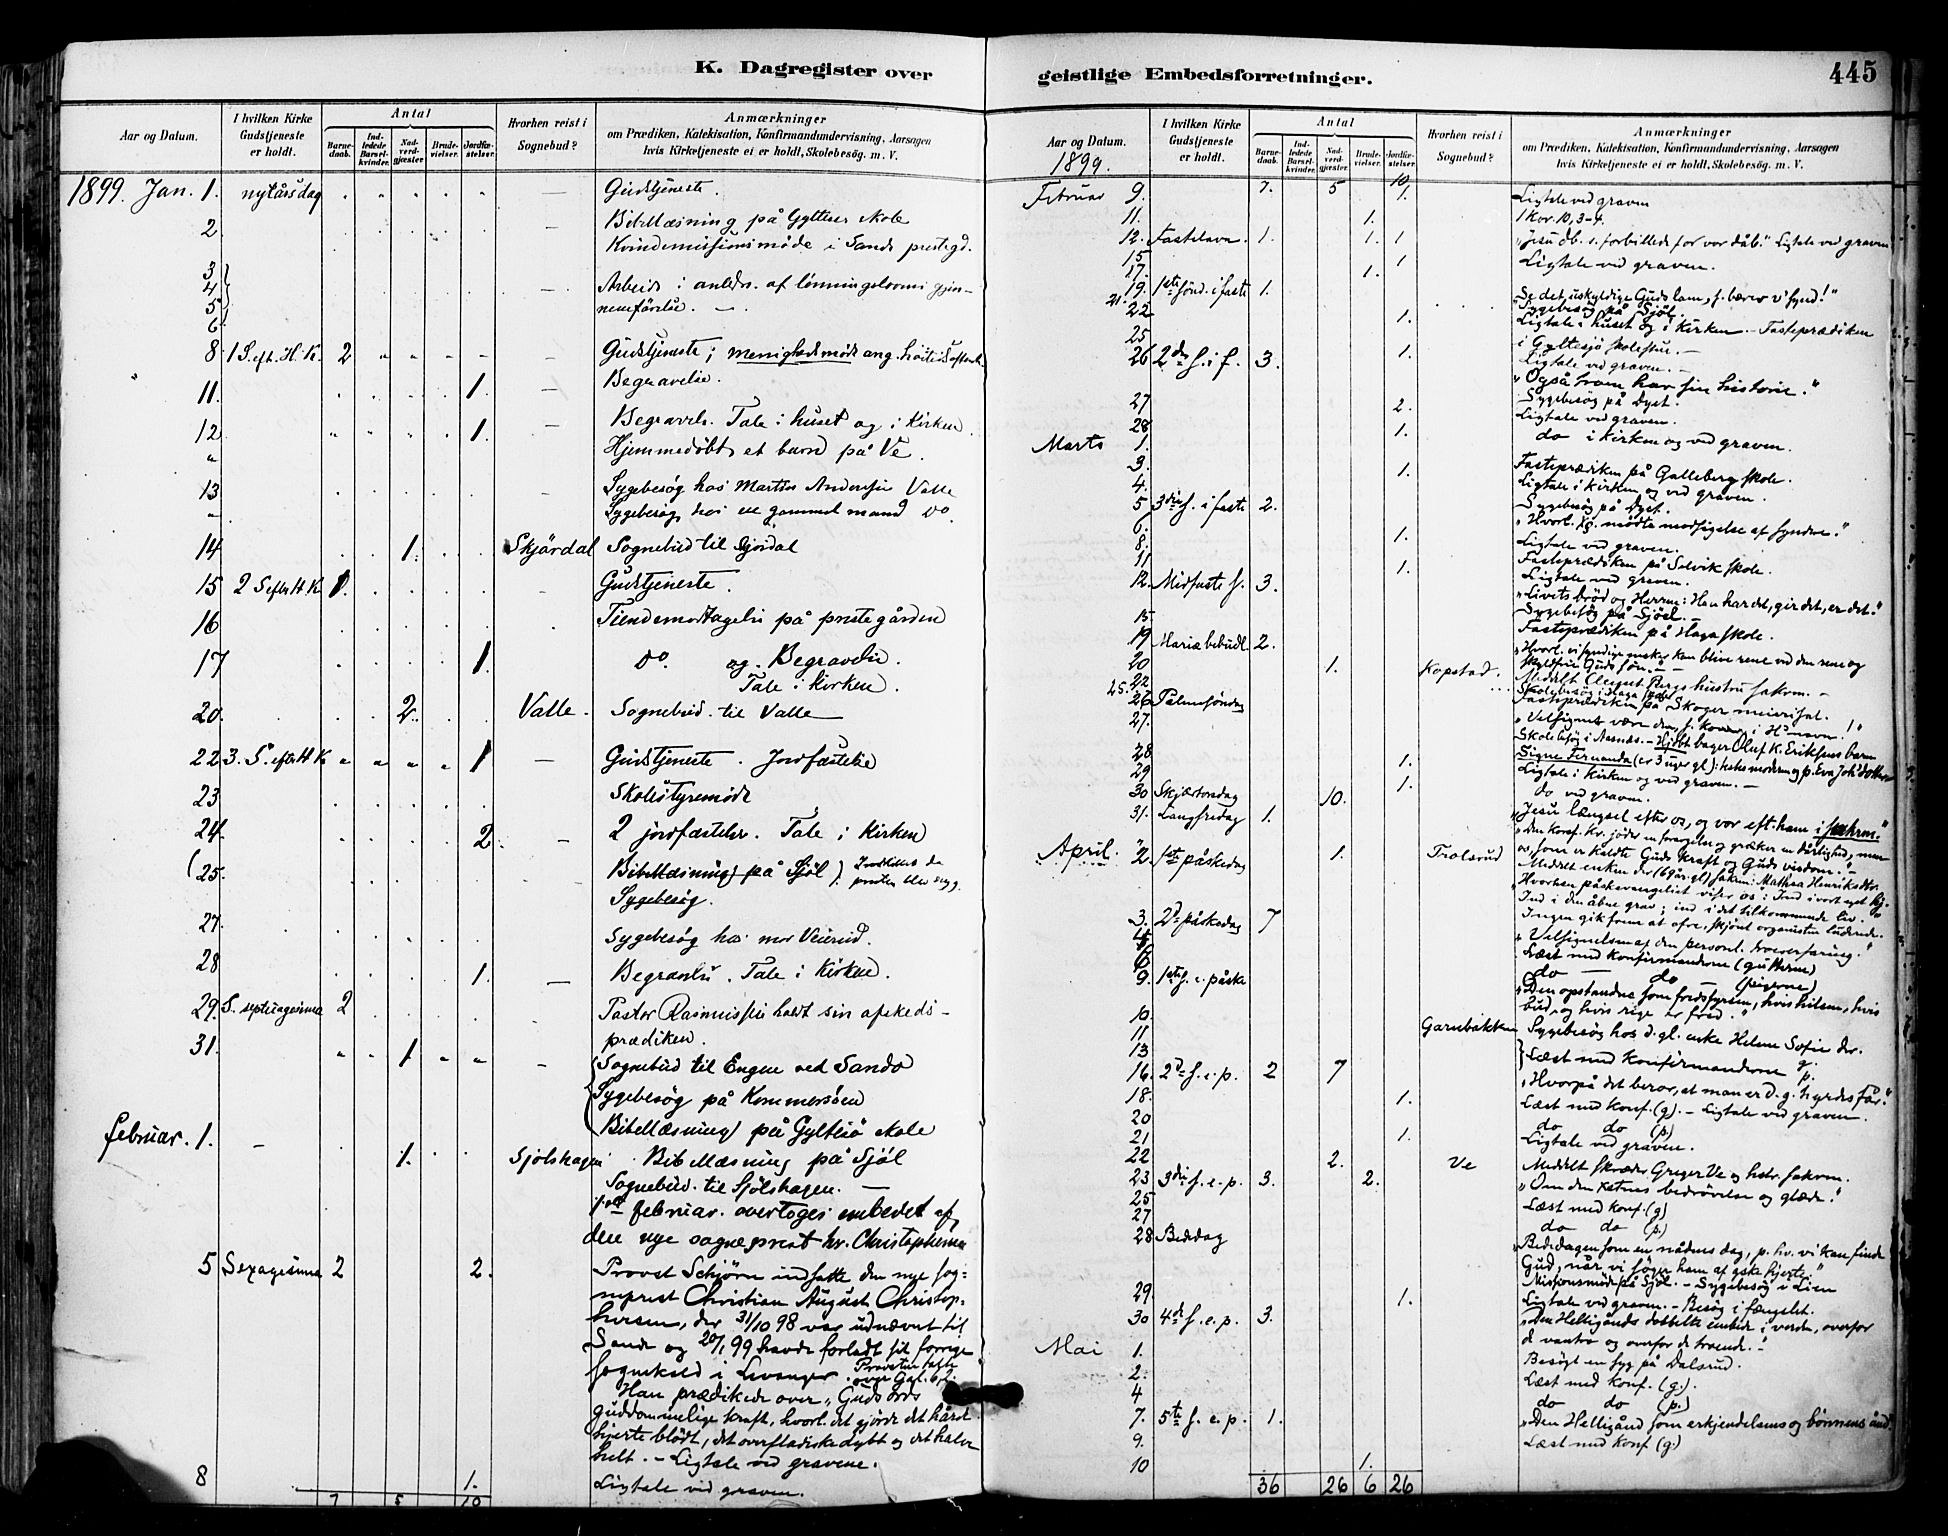 K. Dagregister over
geistlige Embedsforretninger.
445
Aar og Datum.
I hvilken Kirke Gudstjeneste er holdt.
Antal
Barnedaab.
Indledede Barselkvinder.
Nadverdgjæster.
Brudevielser.
Jordfæstelser.
Hvorhen reist i Sognebud?
Anmærkninger
om Prædiken, Katekisation, Konfirmandundervisning, Aarsagen
hvis Kirketjeneste ei er holdt, Skolebesög. m. V.
1899. Jan. 1. nytårsdag — Gudstjeneste.
2 — Bibellæsning på Gyltesø skole
Kvindemissionsmøde i Sands prestegd.
3
4 Arbeid i anledn. af lønningslovens gjen-
5 nemförelse. —
6
8 1 S. eft. H. K. 2 Gudstjeneste; menighedsmøde ang.
11. 1. — Begravelse.
12 1. — Begravels. Tale i huset og i Kirken.
" Hjemmedøbt et barn på Ve.
13 Sygebesøg hos Martin Andersen Valle
" Sygebesøg hos en gammel mand do.
14 1. Skjørdal Sognebud til Sjordal
15 2 S efter H K 1. Gudstjeneste.
16 Tiendemodtagelse på prestegården
17 1. do. og Begravelse.
Tale i Kirken.
20. 2. Valle. Sognebud til Valle
22 3. S. efter H K 1 — Gudstjeneste. Jordfæstelse
23 Skolestyremøde
24. 2. — 2 jordfæstelser. Tale i Kirken
(25. Bibellæsning på Sjøl) presten blev syg.
Sygebesøg.
27. Sygebesøg hos mor Veierud.
28 1. — Begravelse. Tale i Kirken.
29. S. septuagesima 2 Pastor Rasmussen holdt sin afskeds-
prædiken.
31. 1 - Sognebud til Engene ved Sande
Sygebesøg på Kommersøen
Bibellæsning på Gyltesø skole
februar. 1. — 1. Sjølshagen Bibellæsning på Sjøl
Sognebud til Sjølshagen. —
1ste februar. overtoges embedet af
den nye sogneprest hr. Christophersen
5 Sexagesima 2 2. Provst Schjörn indsatte den nye sog-
neprest Christian August Christop-
hersen, der 31/10 98 var udnævnt til
Sande og 20/1 99 havde forladt sit forrige
sognekald i Levanger.
Han prædikede over „Guds ords
guddommelige kraft, hvorl. det gjörde det hårde
hjerte blödt, det overfladiske dybt og det halve
helt. — Ligtale ved gravene.
8 1. Ligtale ved graven.
7 5 10
Aar og Datum.
1899.
I hvilken Kirke Gudstjeneste er holdt.
Antal
Barnedaab.
Indledede Barselkvinder.
Nadverdgjæster.
Brudevielser.
Jordfæstelser.
Hvorhen reist i Sognebud?
Anmærkninger
om Prædiken, Katekisation, Konfirmandundervisning, Aarsagen
hvis Kirketjeneste ei er holdt, Skolebesög. m. V.
7. 5 10
Februar 9. 1. Ligtale ved graven
11. 1. 1 Kor. 10, 3-4.
12. Fastelavn. 1. 1. 1 „Jesu db. s. forbillede for vor dåb." Ligtale ved graven
15 1 Ligtale ved graven.
17. 1.
19. 1ste sønd. i faste 1. „Se det uskyldige Guds lam, s. bærer v' synd!"
21. Sygebesøg på Sjöl.
22 1. Ligtale i huset og i Kirken. — Fasteprædiken
25 i Gyltesjö skolestue. —
26 2den s. i f. 3. 1. Ligtale ved graven. —
„Også troen har sin historie."
27 2. Sygebesög på Dyst.
28 1. Ligtale ved graven.
Marts 1. do i Kirken og ved graven.
3. 1. Fasteprædiken på Galleberg skole.
4. Ligtale i Kirken og ved graven.
5 3die s. i faste 2. Sygebesög på Dyst.
6. 1. „Hvorl. mödte modsigelse af syndere."
8. Ligtale ved graven.
11 1. Fasteprædiken på Selvik skole.
12. Midfaste s. 3. Ligtale ved graven.
„Livets bröd og Herren: Han har det, gir det, er det."
15 Sygebesög på Sjöl. —
19 Mariæ bebudl. 2. Fasteprædiken på Haga skole.
20 1. Kopstad. „Hvorl. vi syndige mnsker kan blive rene ved den rene og
22 skyldfrie Guds sön. —
25. Meddelt August Bergs hustru sakrm. —
26 Palmesøndag Skolebesög i Haga skole
27. Fasteprædiken på Skoger meierisal.
28 1. Skolebesög i Aasnes. — Hjdöbt bager Oluf K. Eriksens barn
29 1. Signe Fernanda (er 3 uger gl.)
30 Skjærtorsdag 10. Ligtale i Kirken og ved graven. —
31. Langfredag 1. do ved graven.
„Jesu længsel efter os, og vor eft. ham i sakrm."
April. 2. 1ste påskedag 1. Trolsrud
os, som er kaldte Guds kraft og Guds visdom." —
3. 2d påskedag 7 Ind i den åbne grav; ind i det tilkommende liv. —
4 Ingen gik frem at ofre, skjönt organisten ludende.
6 Læst med Konfirmanderne (gutterne)
9. 1ste s. e. påske do — do — (pigerne)
„Den opstandne som fredsfyrsten, hvis hilsen, hvis
10. bud, og hvis rige er fred."
11 Garnbakken Sygebesøg hos d. gl. enke Helene Sofie
13 Læst med Konfirmanderne g.
16. 2den s. e. p. 2 7 p.
18. 1. „Hvorpå det beror, at man er d. g. hyrdes får."
20 Læst med Konf. (g). — Ligtale ved graven.
21 1. do do (p.)
22 2. Ve Ligtale ved graven.
23 3die s. e. p. 3. 2. Meddelt skræder Greger Ve og hstr. sakrm.
25 „Om den kristnes bedrøvelse og glæde."
27 Læst med Konf. (g)
28 Beddag do do (p.)
„Bededagen som en nådens dag, p. hv. vi kan finde
Gud, når vi söger ham af gske hjerte."
29 1. Missionsmøde på Sjöl. — Sygebesög i Lien
30 4de s. e. p. 3. Ligtale ved graven. — Besög i fængslet.
„Den Helligånds dobbelte embede i verden, overfor
Mai 1. d vantro og overfor de troende." —
2. Besögt en syg på Dalsrud.
4 Læst med Konf. (g.)
do do (p.)
7. 5te s. e. p. 1. „Den Helligånd som erkjendelsens og bönnens ånd
9. Læst med Konf. (g.)
10 1.
36 26 6 26